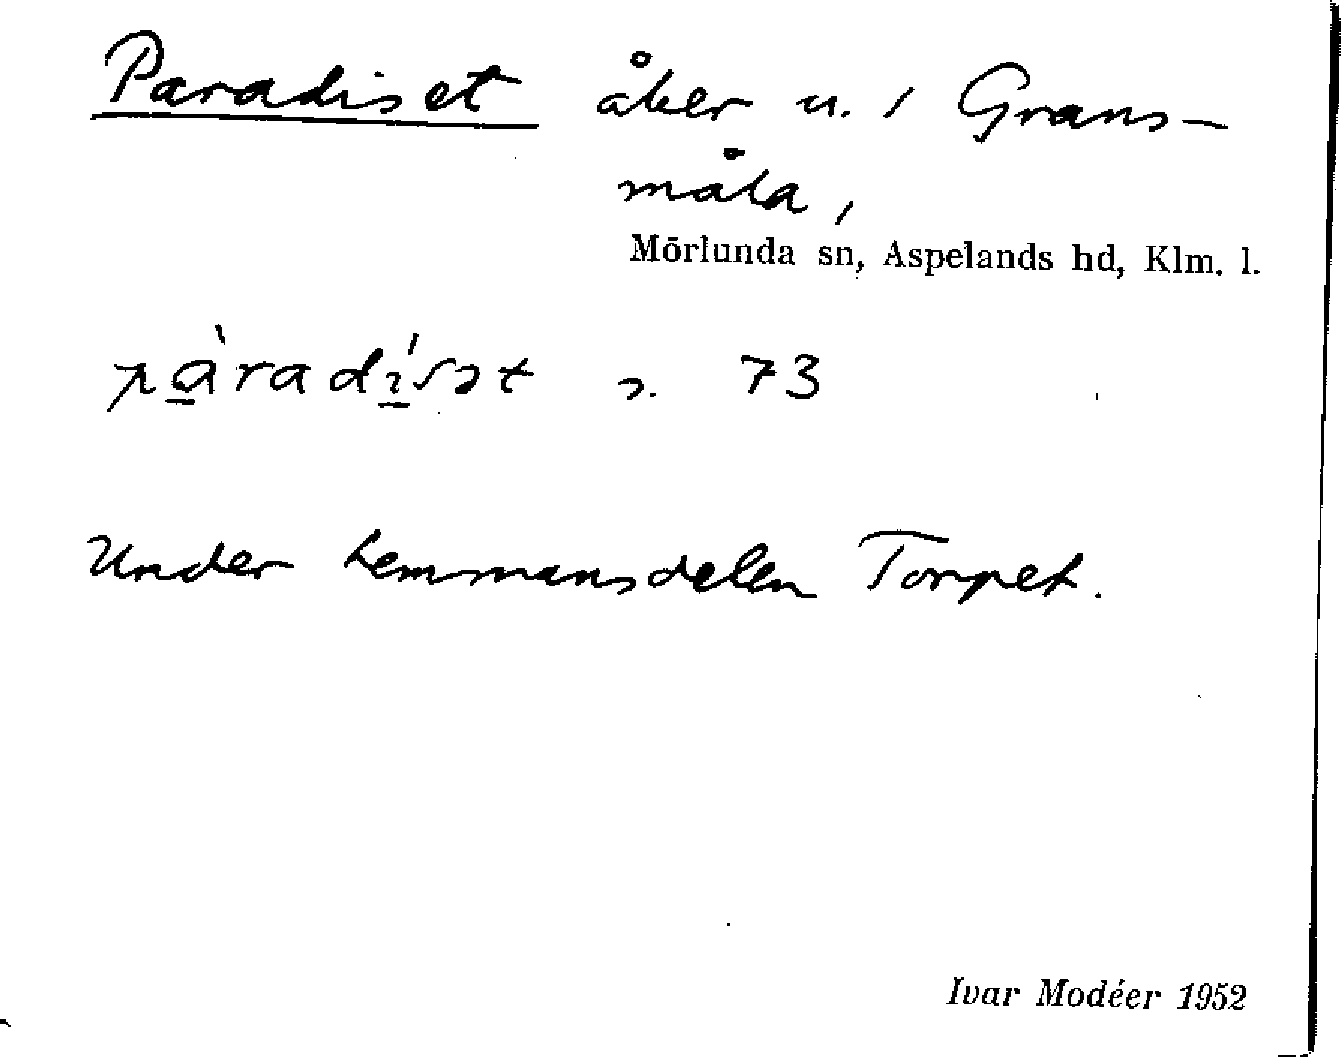 Paradiset åker u. / Grans-
måla,
Mörlunda sn, Aspelands hd, Klm. l.
pàradísət s. 73
Under hemmansdelen Torpet.
Ivar Modéer 1952